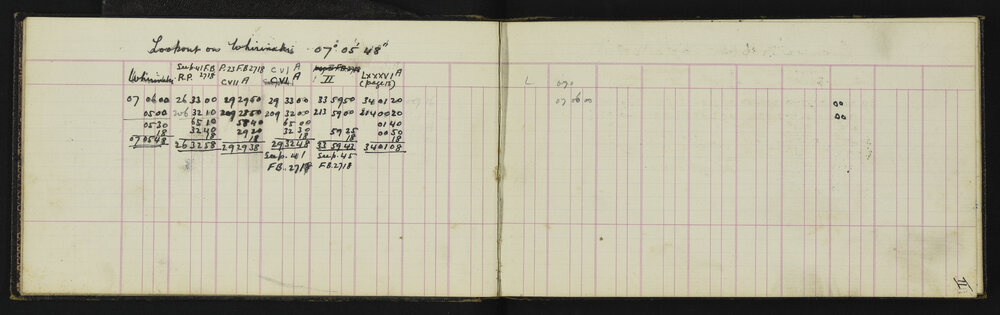 Lookout on Whirinaki 07° 05' 48"
Sup. 41 F.B P. 23 F.B 2718 CVI A
Whirinaki R.P. 2718 CVII A CVI A II LXXXVI A
(page 15)
07 06 00 26 33 00 29 29 50 29 33 00 33 59 50 34 01 20
05 00 206 32 10 209 28 50 209 32 00 213 59 00 214 00 20
05 30 65 10 58 40 65 00 01 40
18 32 40 29 20 32 30 59 25 00 50
18 18 18 18 18
07 05 48 26 32 58 29 29 38 29 32 48 33 59 43 34 01 08
Sup. 41 Sup. 45
F.B. 2718 F.B. 2718
L 070
07 06 00 00
00
11